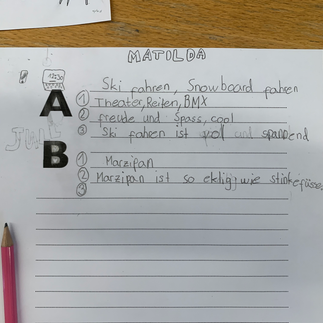 MATILDA
12:30
Ski fahren, Snowboard fahren
A
① Theater, Reiten, BMX
② freude und Spass, cool
③ Ski fahren ist voll und spannend
B
① Marzipan
② Marzipan ist so eklig, wie stinkefüsse
③